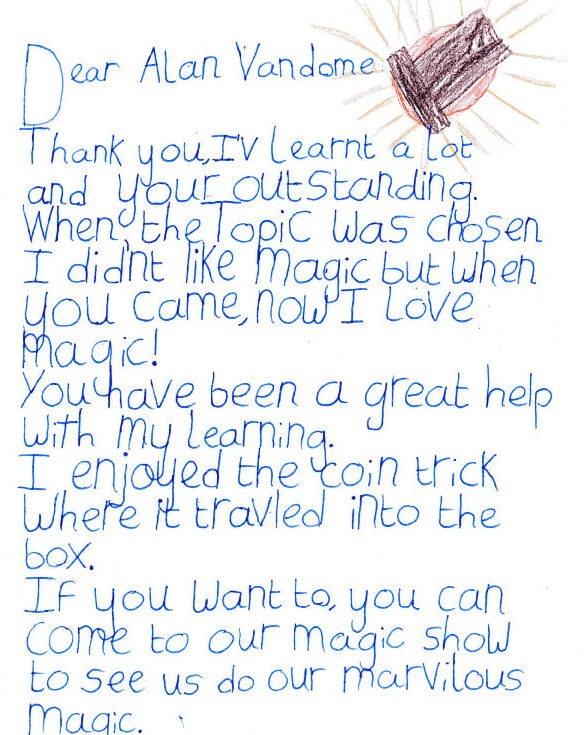 Dear Alan Vandome
Thank you, I'V Learnt a lot
and your outstanding.
When, the Topic was chosen
I didn't like magic but when
you came, now I Love
magic!
You have been a great help
with my learning.
I enjoyed the coin trick
where it travled into the
box.
If you want to, you can
come to our magic show
to see us do our marvilous
magic.